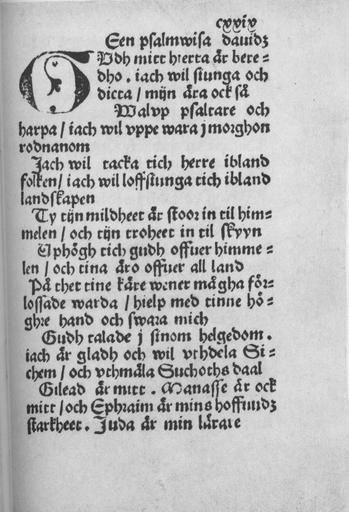 cxxix
Een psalmwisa dauidz
GUdh mitt hierta är bere=
dho. iach wil siunga och
dicta / mijn ära ock så
Walvp psaltare och
harpa / iach wil vppe wara j morghon
rodnanom
Jach wil tacka tich herre ibland
folken / iach wil loffsiunga tich ibland
landskapen
Ty tijn mildheet är stoor in til him=
melen / och tijn troheet in til skyyn
Uphögh tich gudh offuer himme=
len / och tina äro offuer all land
På thet tine käre wener mågha för=
lossade warda / hielp med tinne hö=
ghre hand och swara mich
Gudh talade j sinom helgedom.
iach är gladh och wil vthdela Si=
chem / och vthmäla Suchoths daal
Gilead är mitt. Manasse är ock
mitt / och Ephraim är mins hoffuudz
starkheet. Juda är min lärare